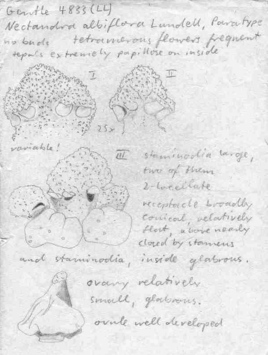 Gentle 4833 (LL)
Nectandra albiflora Lundell, Paratype
no buds tetramerous flowers frequent
tepals extremely papillose on inside
I
II
25x
variable!
III
staminodia large,
two of them
2-locellate
receptacle broadly
conical, relatively
flat, above nearly
closed by stamens
and staminodia, inside glabrous.
ovary relatively
small, glabrous.
ovule well developed